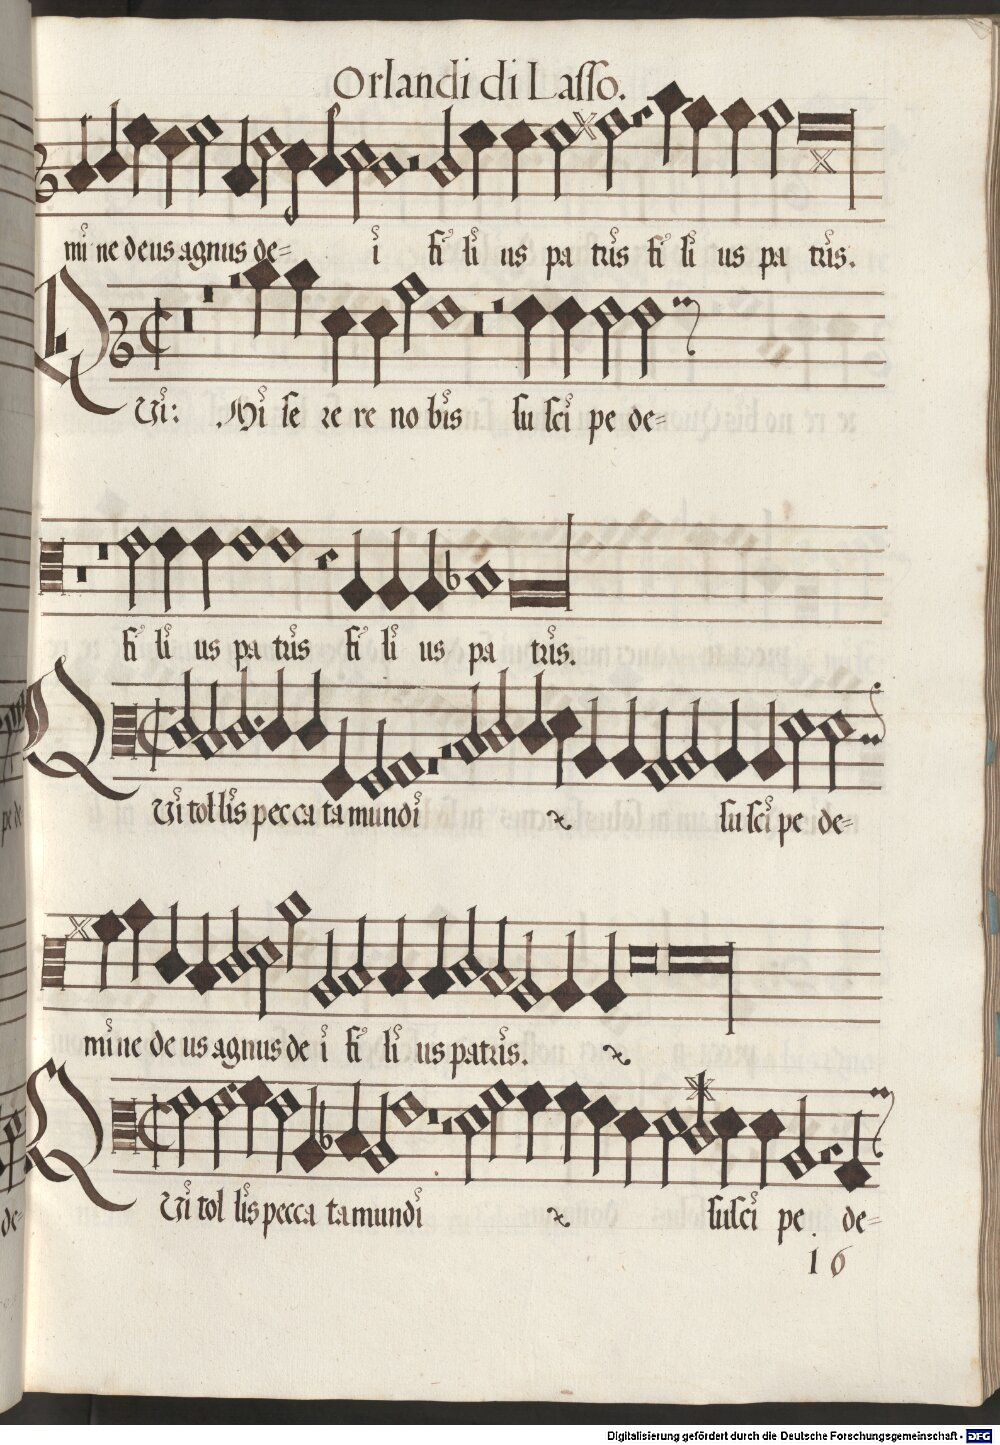 Orlandi di Lasso.
mi ne deus agnus de= i fi li us pa tris fi li us pa tris.
Qui: Mi se re re no bis su sci pe de=
fi li us pa tris fi li us pa tris.
Qui tol lis pec ca ta mundi su sci pe de=
mi ne de us agnus de i fi li us patris.
Qui tol lis pecca ta mundi susci pe de=
16
Digitalisierung gefördert durch die Deutsche Forschungsgemeinschaft - DFG